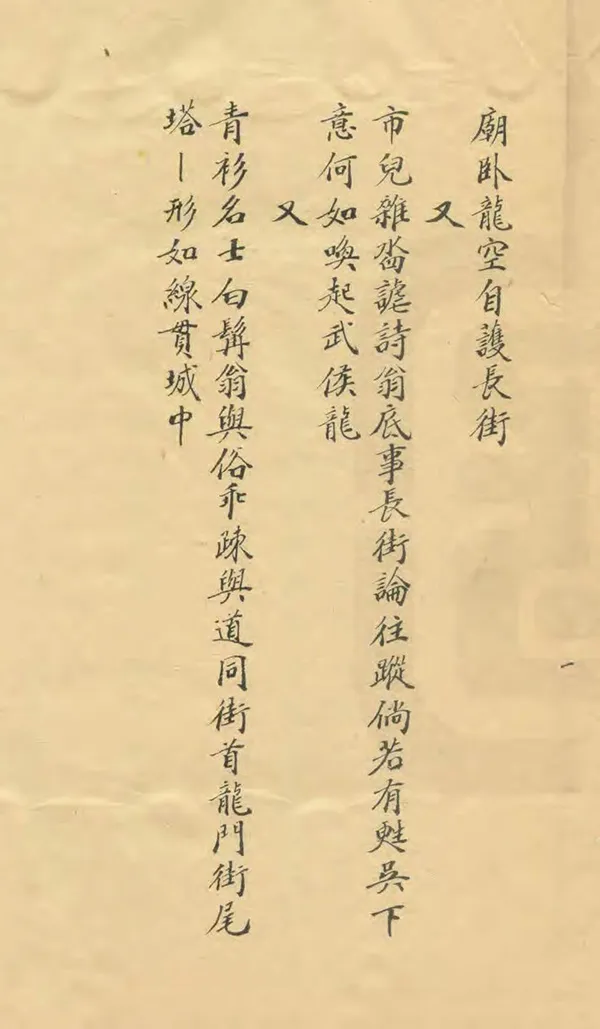 廟卧龍空自護長街
又
市兒雜畓謔詩翁底事長街論往蹤倘若有甦吳下
意何如喚起武侯龍
又
青衫名士白髯翁與俗乖踈與道同街首龍門街尾
塔丨形如線貫城中